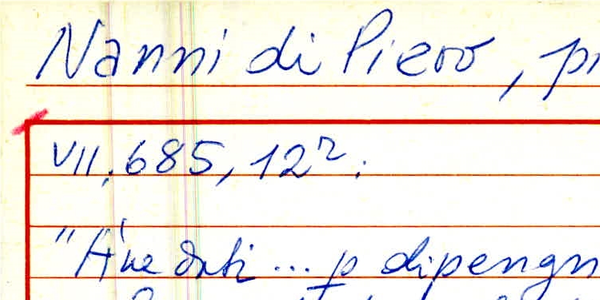 Nanni di Piero, pi
VII, 685, 12r:
dati ... p dipengn